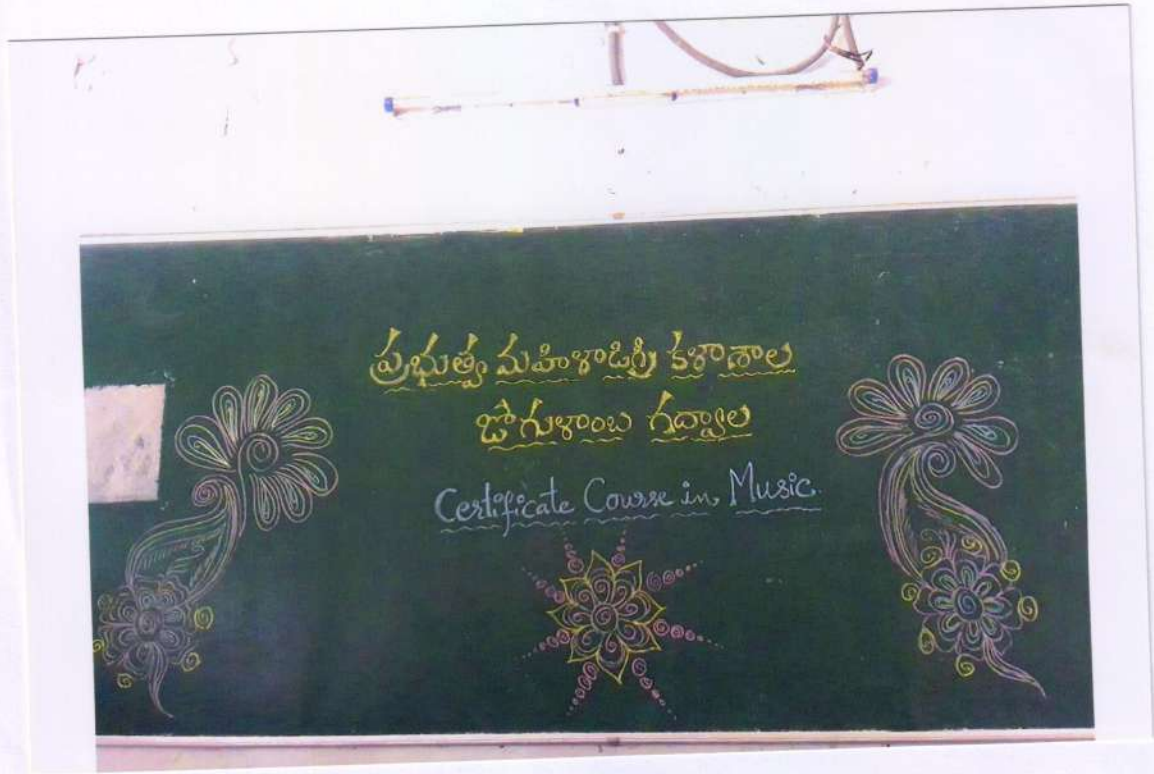 ప్రభుత్వ మహిళాడిగ్రీ కళాశాల
జోగుళాంబ గద్వాల
Certificate Course in Music